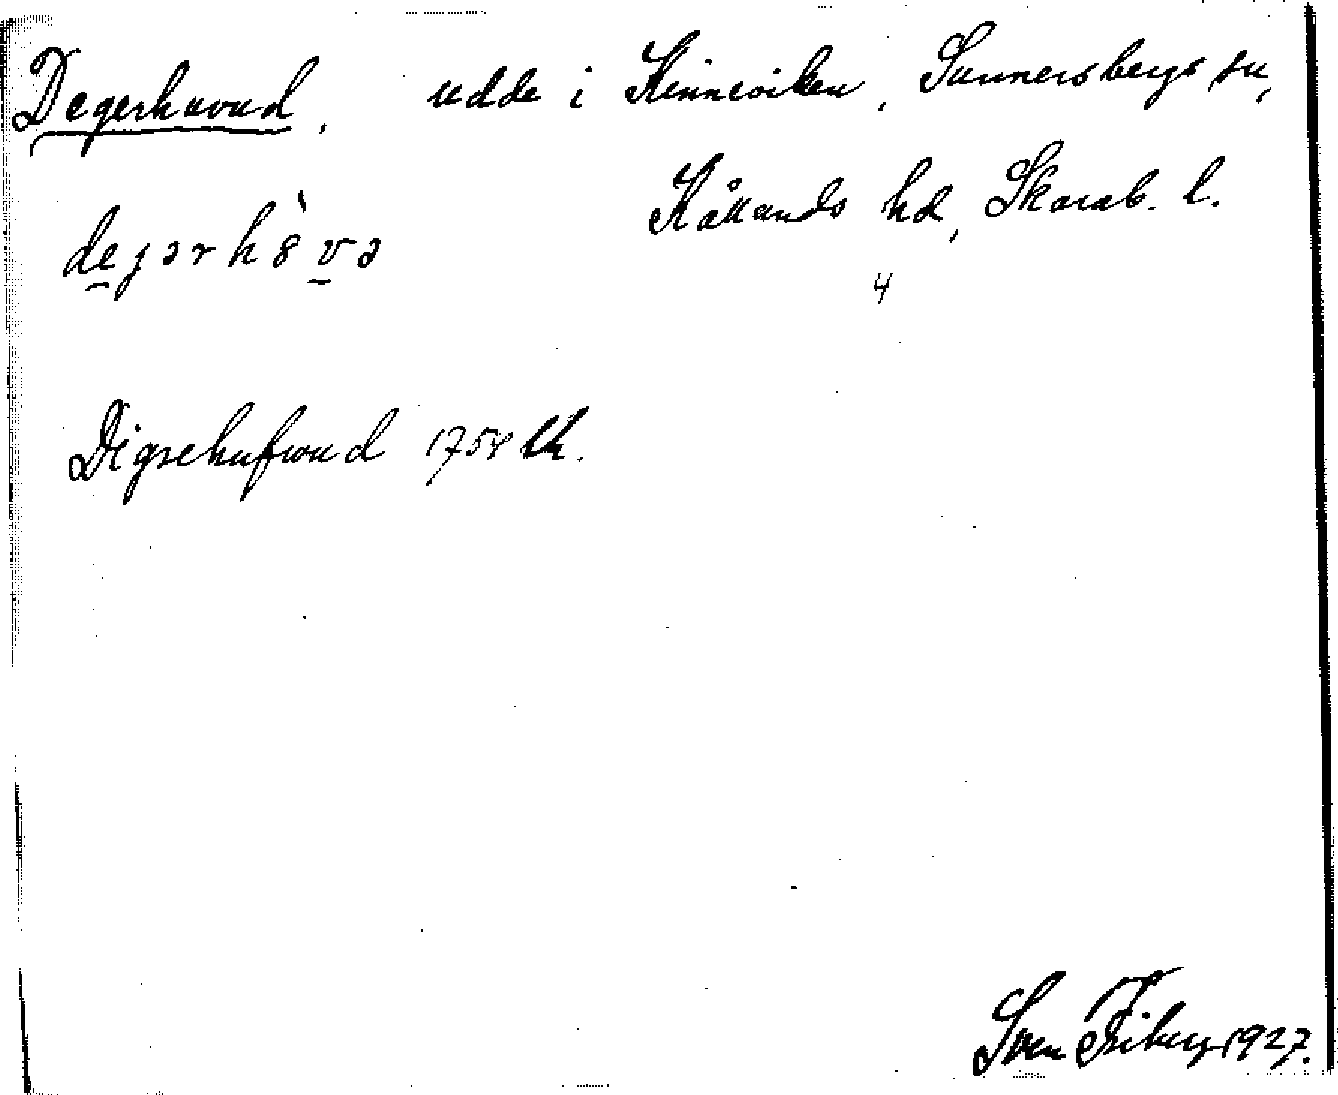 Degerhuvud, udde i Kinneviken, Sunnersbergs sn,
Kållands hd, Skarab. l.
dejərh8̀və
4
Digrehufwud 1758 lh.
Sven Friberg 1927.